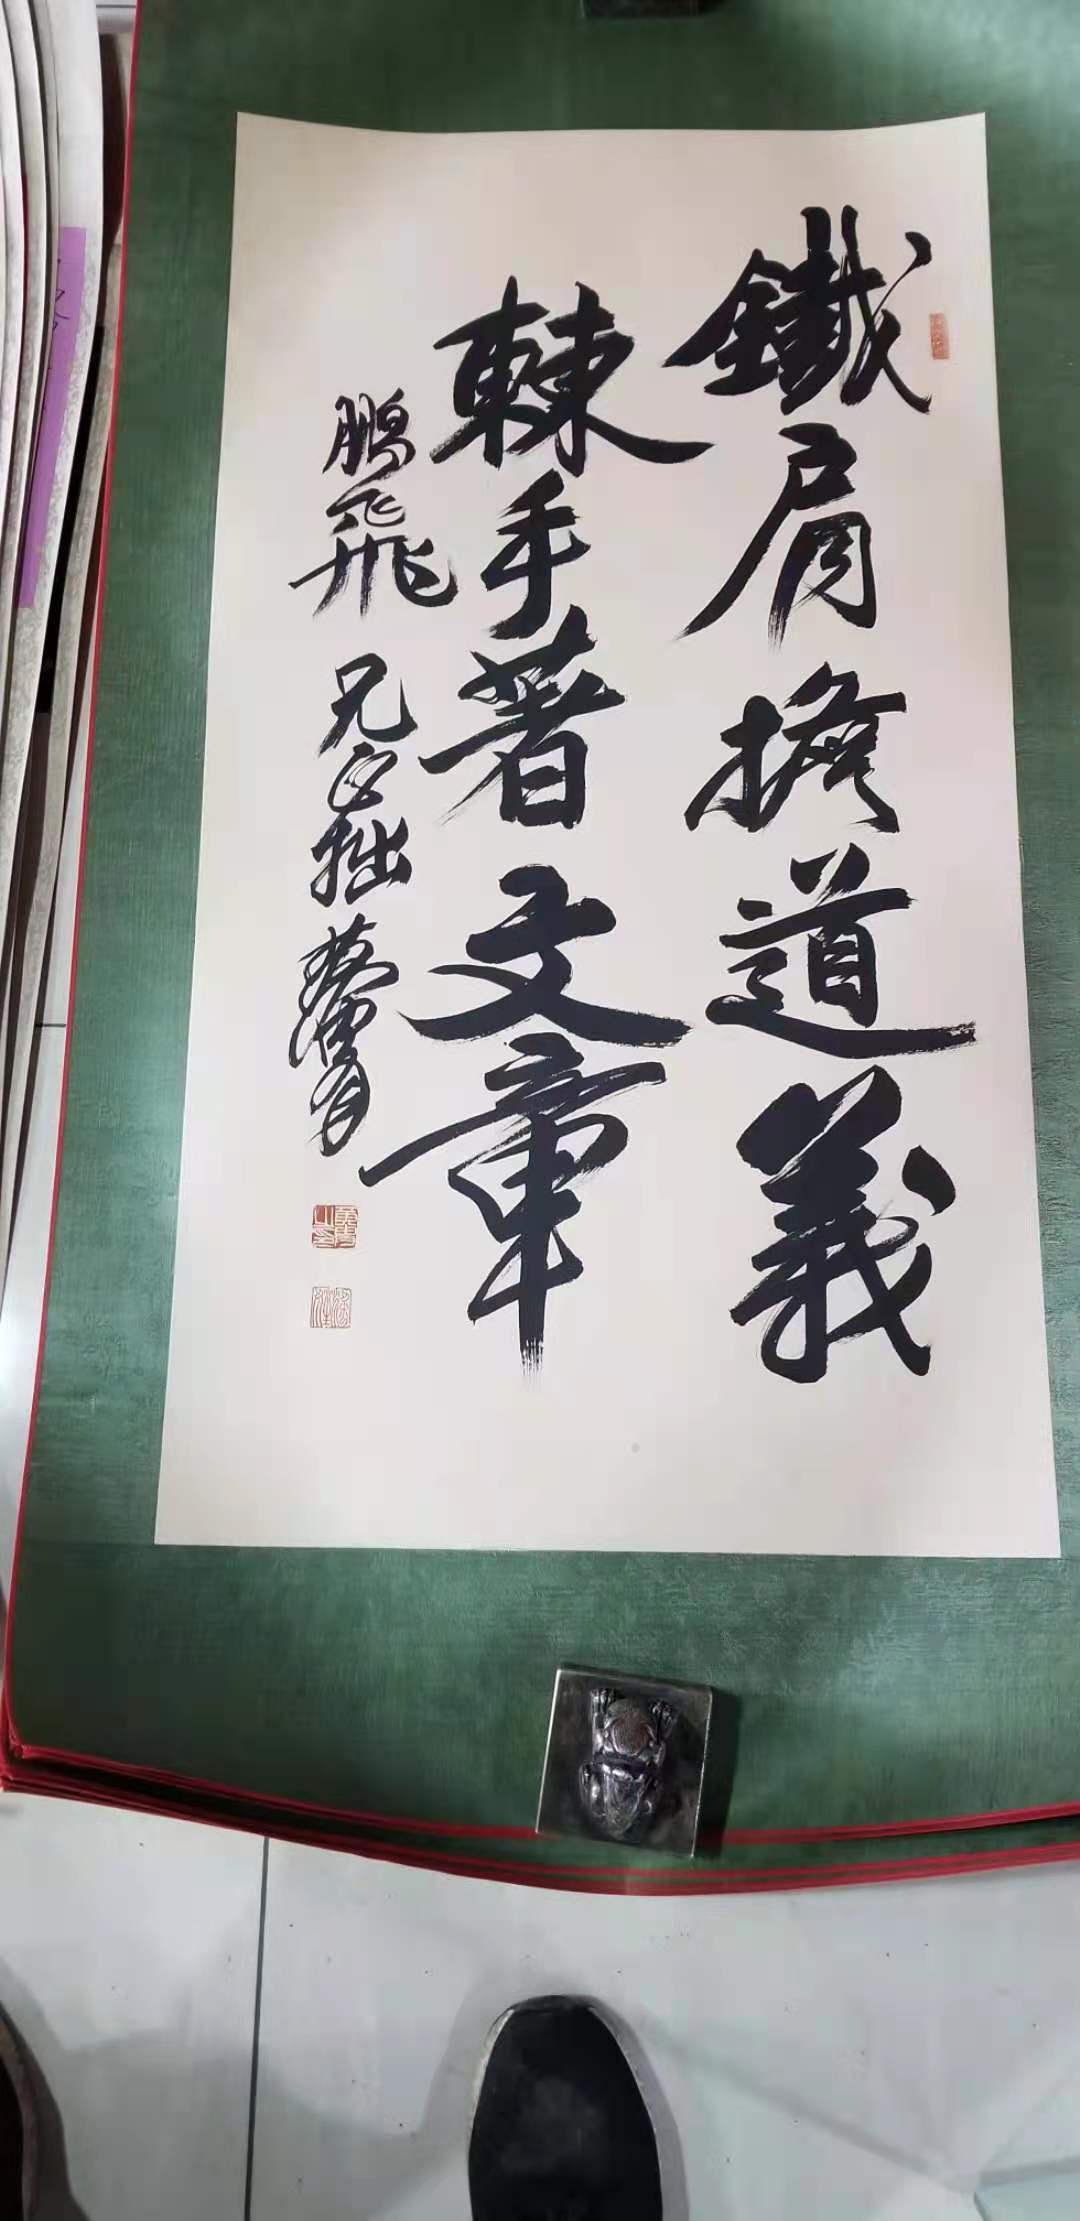 鐵肩擔道義
棘手著文章
鵬飛兄正拙